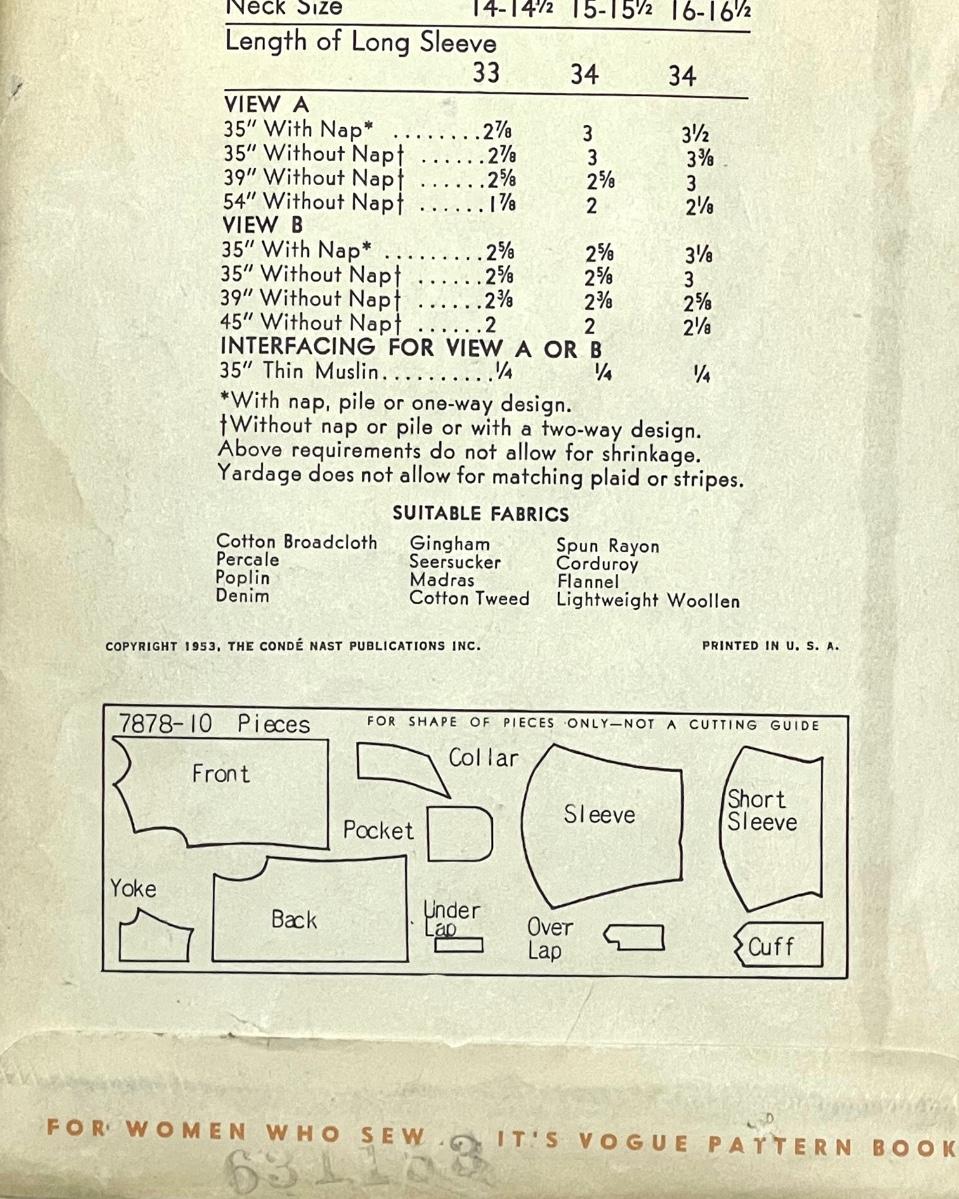 Neck Size 14-14½ 15-15½ 16-16½
Length of Long Sleeve
33 34 34
VIEW A
35" With Nap* ........2⅞ 3 3½
35" Without Nap† ......2⅞ 3 3⅜
39" Without Nap† ......2⅝ 2⅝ 3
54" Without Nap† ......1⅞ 2 2⅛
VIEW B
35" With Nap* .........2⅝ 2⅝ 3⅛
35" Without Nap† ......2⅝ 2⅝ 3
39" Without Nap† ......2⅜ 2⅜ 2⅝
45" Without Nap† ......2 2 2⅛
INTERFACING FOR VIEW A OR B
35" Thin Muslin..........¼ ¼ ¼
*With nap, pile or one-way design.
†Without nap or pile or with a two-way design.
Above requirements do not allow for shrinkage.
Yardage does not allow for matching plaid or stripes.
SUITABLE FABRICS
Cotton Broadcloth Gingham Spun Rayon
Percale Seersucker Corduroy
Poplin Madras Flannel
Denim Cotton Tweed Lightweight Woollen
COPYRIGHT 1953, THE CONDÉ NAST PUBLICATIONS INC. PRINTED IN U. S. A.
7878-10 Pieces FOR SHAPE OF PIECES ONLY—NOT A CUTTING GUIDE
Front
Collar
Pocket
Sleeve
Short
Sleeve
Yoke
Back
Under
Lap
Over
Lap
Cuff
FOR WOMEN WHO SEW . . IT'S VOGUE PATTERN BOOK